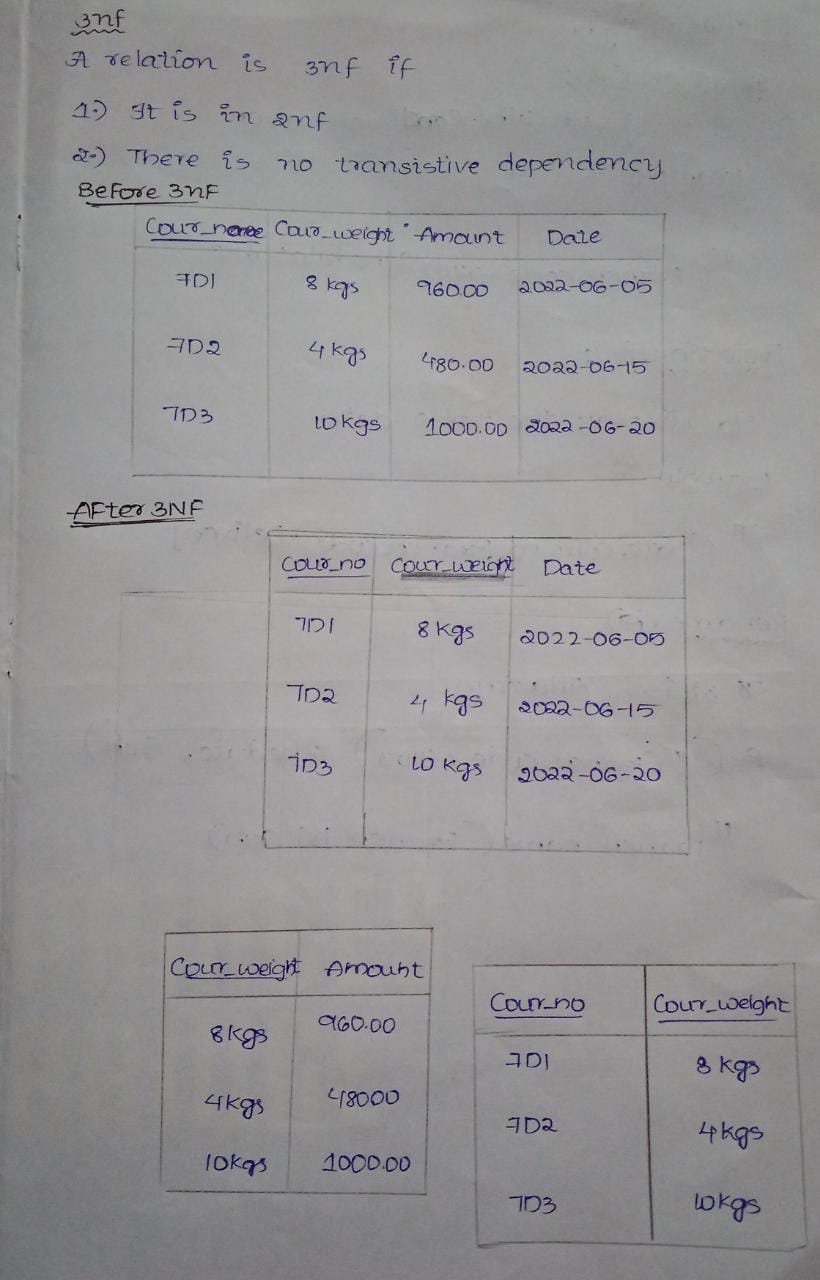 3nf
A relation is 3nf if
1.) It is in 2nf
2.) There is no transistive dependency
Before 3NF
Cour_name Cour_weight Amount Date
7D1 8 kgs 960.00 2022-06-05
7D2 4 kgs 480.00 2022-06-15
7D3 10 kgs 1000.00 2022-06-20
After 3NF
Cour_no Cour_weight Date
7D1 8 kgs 2022-06-05
7D2 4 kgs 2022-06-15
7D3 10 kgs 2022-06-20
Cour_weight Amount
8 kgs 960.00
4 kgs 48000
10 kgs 1000.00
Cour_no Cour_weight
7D1 8 kgs
7D2 4 kgs
7D3 10 kgs